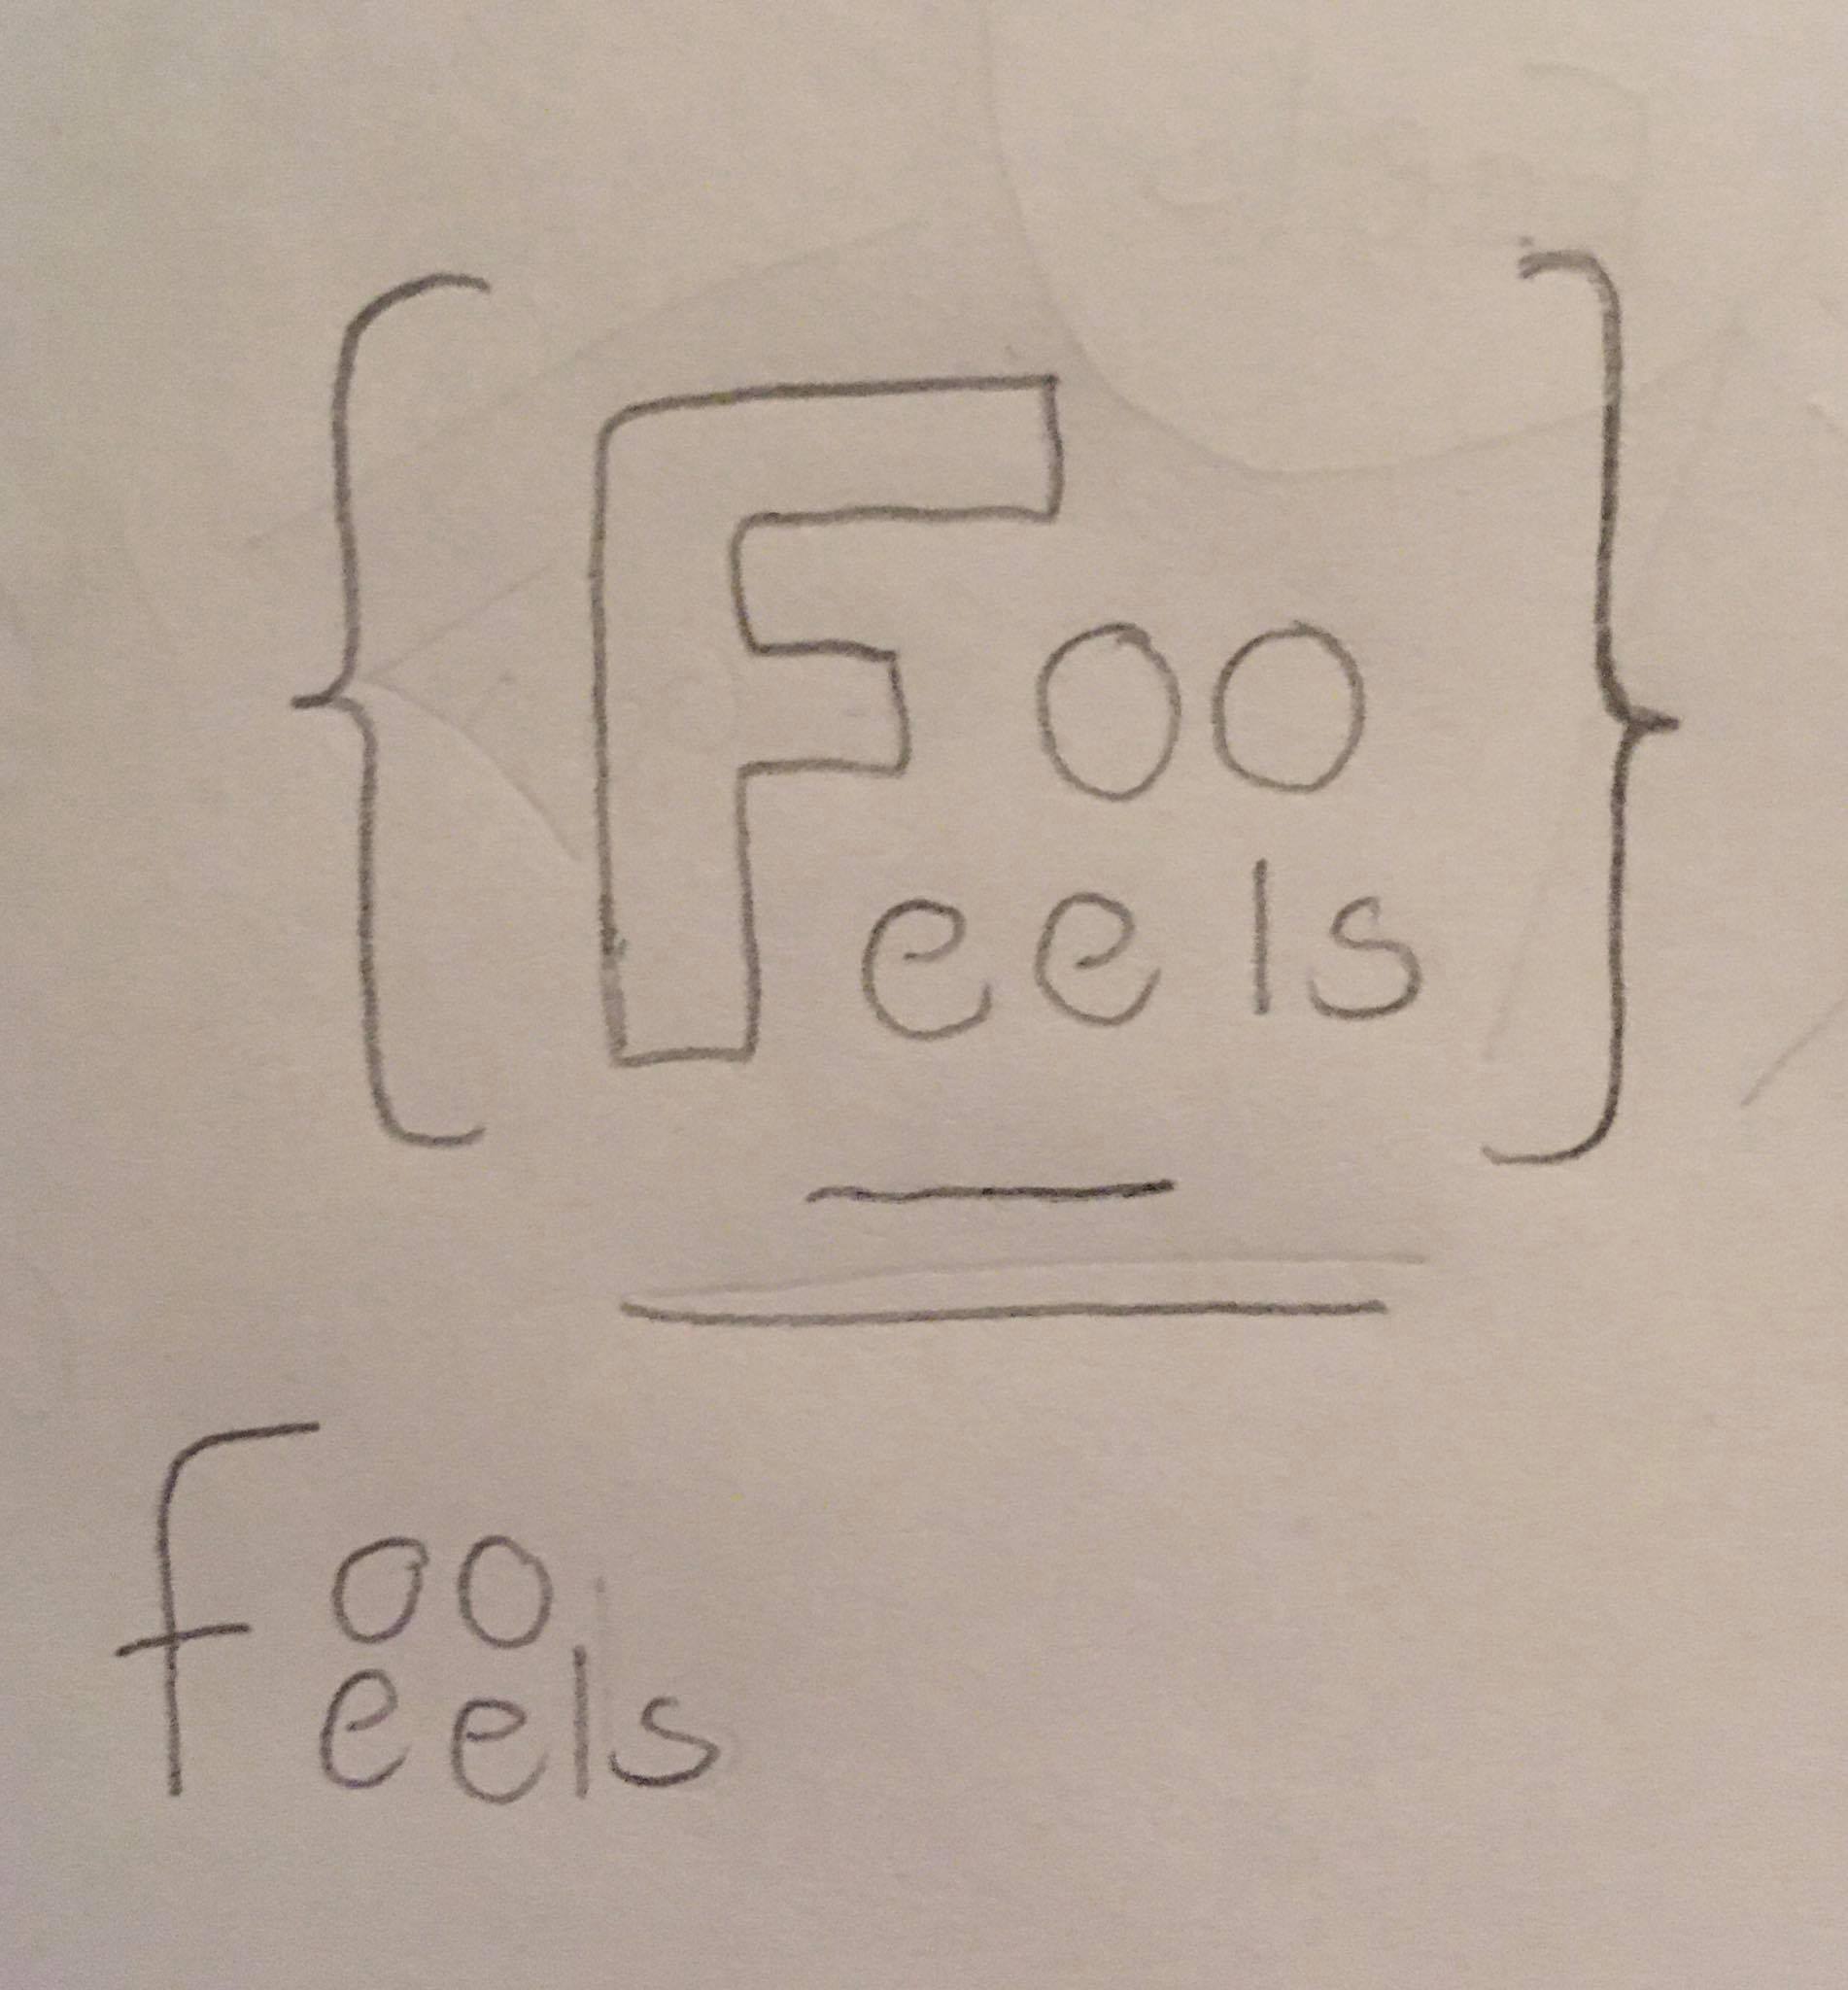 {Foo
eels}
foo
eels